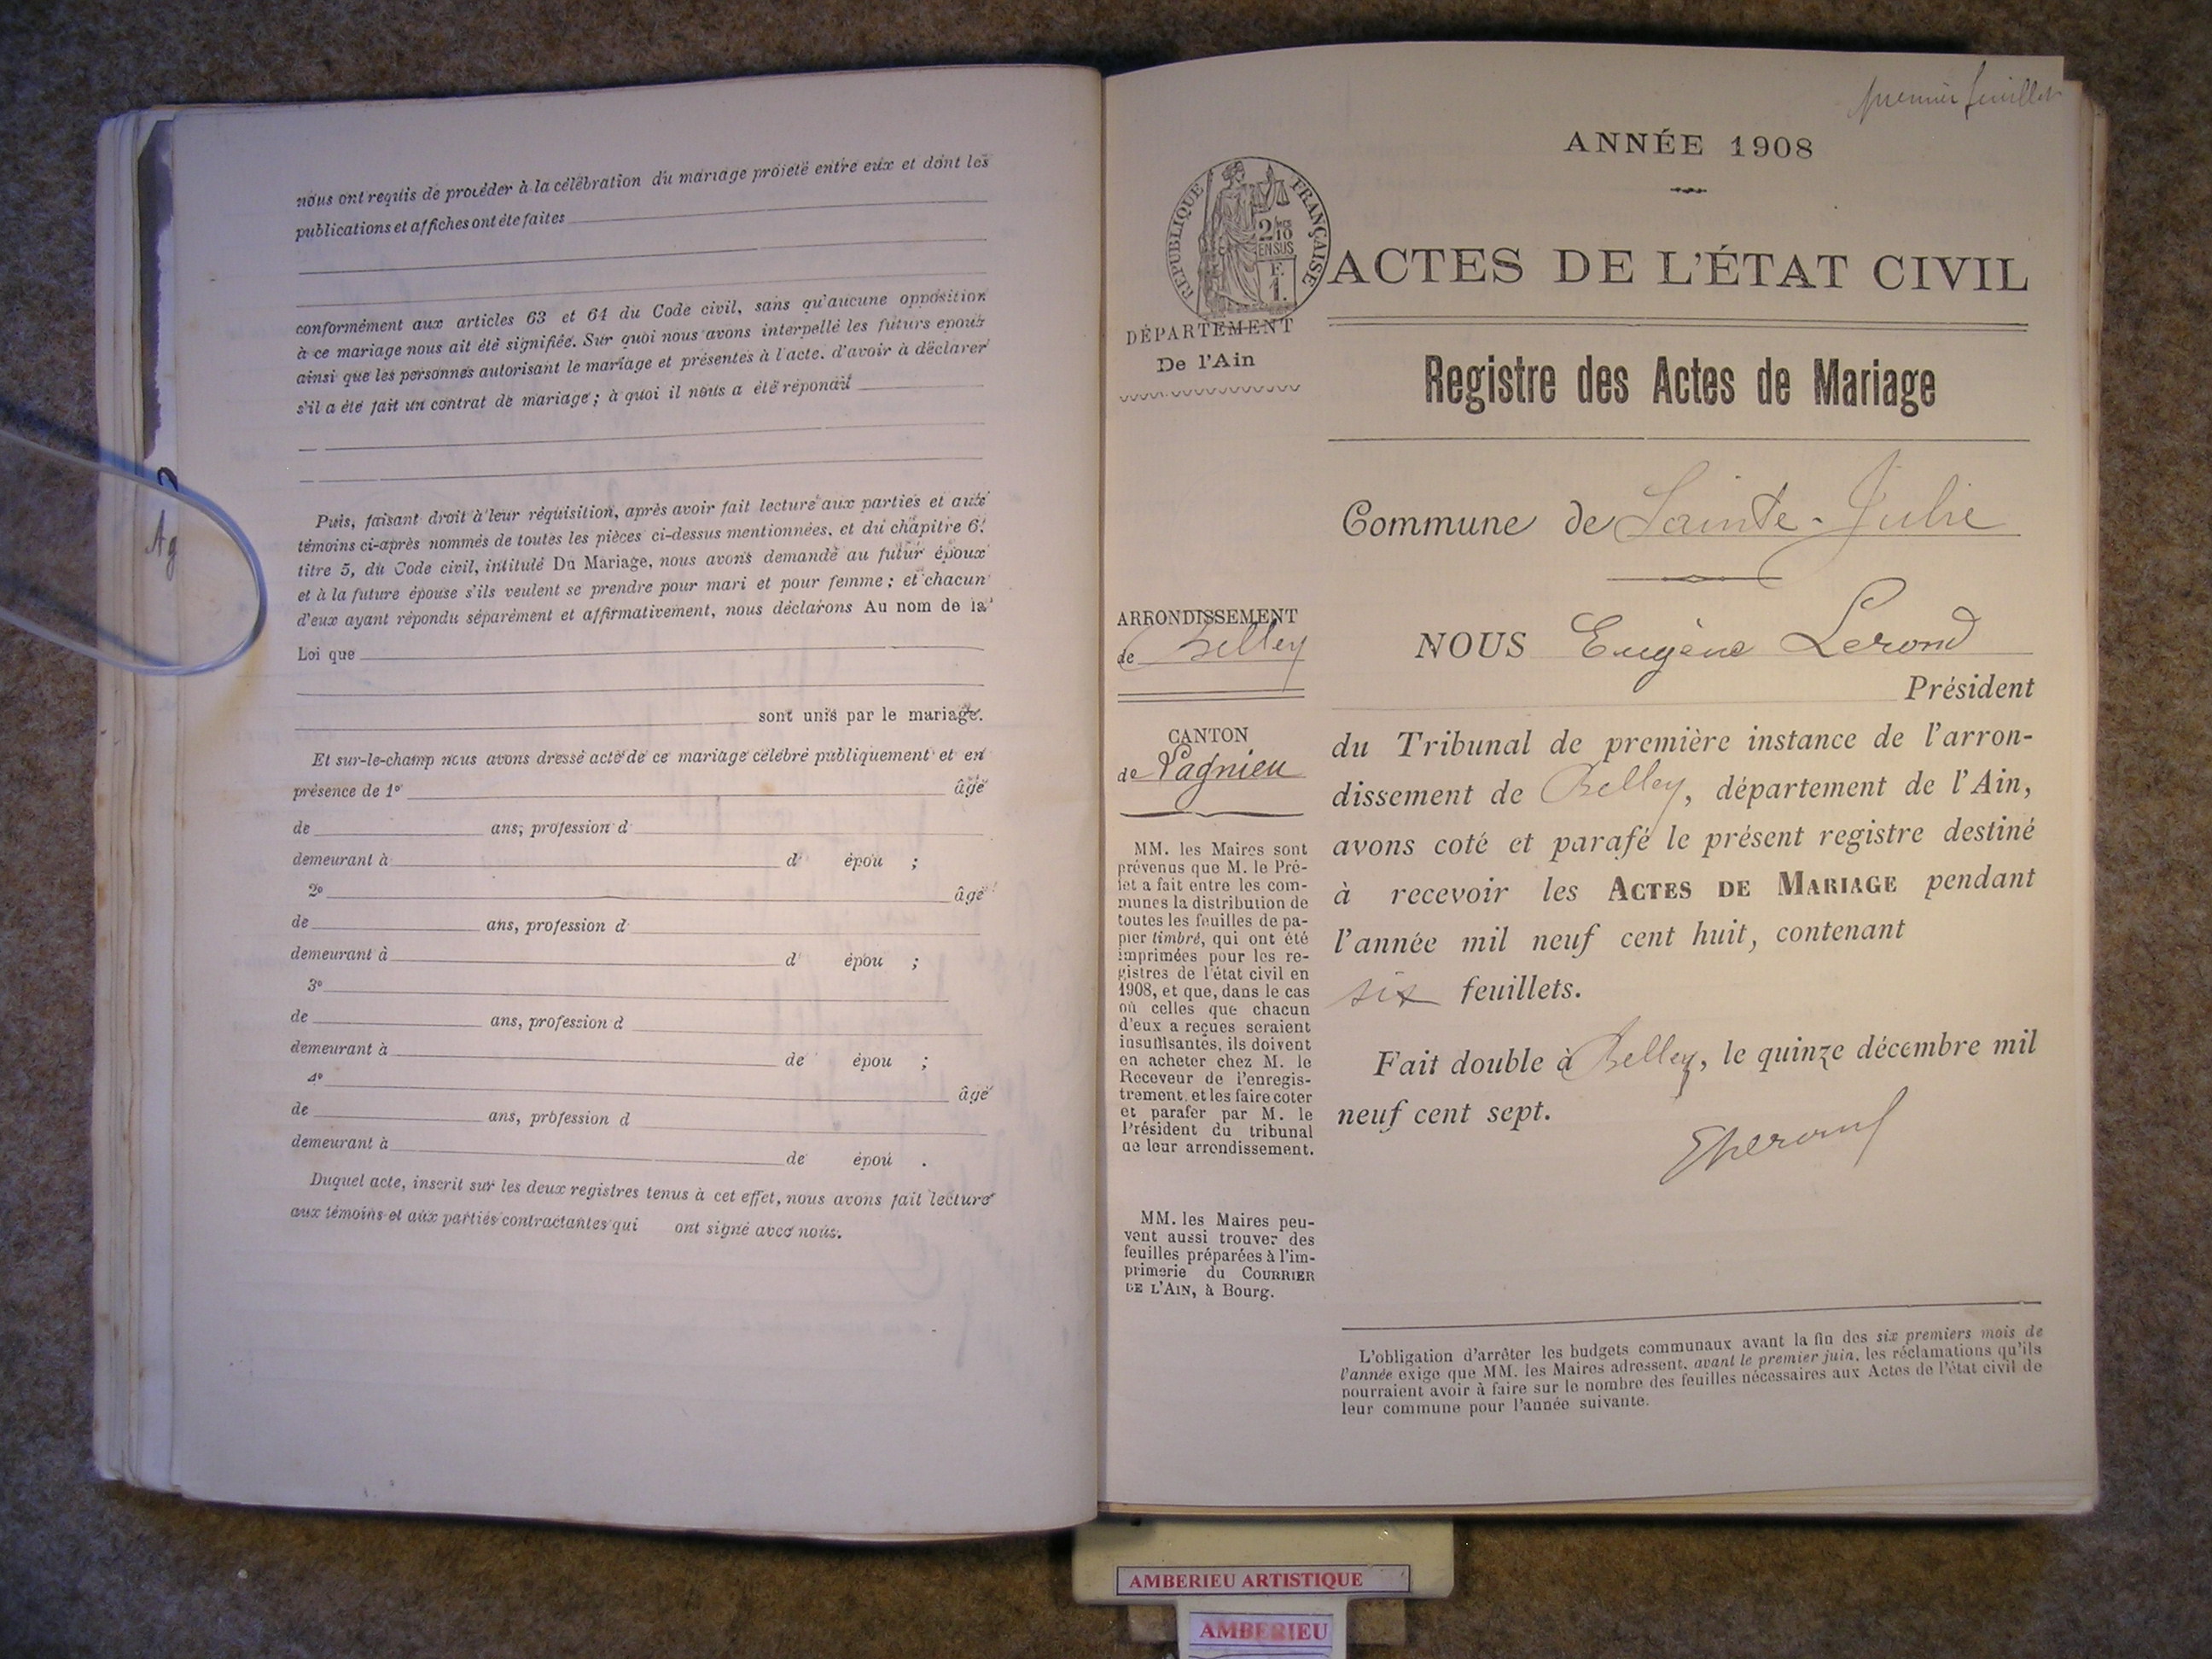 nous ont requis de procéder à la célébration du mariage projeté entre eux et dont les
publications et affiches ont été faites
conformément aux articles 63 et 64 du Code civil, sans qu'aucune opposition
à ce mariage nous ait été signifiée. Sur quoi nous avons interpellé les futurs epoux
ainsi que les personnes autorisant le mariage et présentes à l'acte. d'avoir à déclarer
s'il a été fait un contrat de mariage ; à quoi il nous a été répondu
Puis, faisant droit à leur réquisition, après avoir fait lecture aux parties et aux
témoins ci-après nommés de toutes les pièces ci-dessus mentionnées, et du chapitre 6.
titre 5, du Code civil, intitulé Du Mariage, nous avons demandé au futur époux
et à la future épouse s'ils veulent se prendre pour mari et pour femme ; et chacun
d'eux ayant répondu séparément et affirmativement, nous déclarons Au nom de la
Loi que
sont unis par le mariage.
Et sur-le-champ nous avons dressé acte de ce mariage célébré publiquement et en
présence de 1º âgé
de ans, profession d
demeurant à d épou ;
2º âgé
de ans, profession d
demeurant à d épou ;
3º
de ans, profession d
demeurant à de épou ;
4º âgé
de ans, profession d
demeurant à de épou .
Duquel acte, inscrit sur les deux registres tenus à cet effet, nous avons fait lecture
aux témoins et aux parties contractantes qui ont signé avec nous.
Ag
premier feuillet
ANNÉE 1908
RÉPUBLIQUE FRANÇAISE
2/10
EN SUS
F.
1.
ACTES DE L'ÉTAT CIVIL
DÉPARTEMENT
De l'Ain
Registre des Actes de Mariage
Commune de Sainte-Julie
ARRONDISSEMENT
de Belley
CANTON
de Lagnieu
MM. les Maires sont
prévenus que M. le Pré-
fet a fait entre les com-
munes la distribution de
toutes les feuilles de pa-
pier timbré, qui ont été
imprimées pour les re-
gistres de l'état civil en
1908, et que, dans le cas
où celles que chacun
d'eux a reçues seraient
insuffisantes, ils doivent
en acheter chez M. le
Receveur de l'enregis-
trement, et les faire coter
et parafer par M. le
Président du tribunal
de leur arrondissement.
MM. les Maires peu-
vent aussi trouver des
feuilles préparées à l'im-
primerie du COURRIER
DE L'AIN, à Bourg.
NOUS Eugène Lerond
Président
du Tribunal de première instance de l'arron-
dissement de Belley, département de l'Ain,
avons coté et parafé le présent registre destiné
à recevoir les ACTES DE MARIAGE pendant
l'année mil neuf cent huit, contenant
six feuillets.
Fait double à Belley, le quinze décembre mil
neuf cent sept.
L'obligation d'arrêter les budgets communaux avant la fin des six premiers mois de
l'année exige que MM. les Maires adressent, avant le premier juin, les réclamations qu'ils
pourraient avoir à faire sur le nombre des feuilles nécessaires aux Actes de l'état civil de
leur commune pour l'année suivante.
AMBERIEU ARTISTIQUE
AMBERIEU